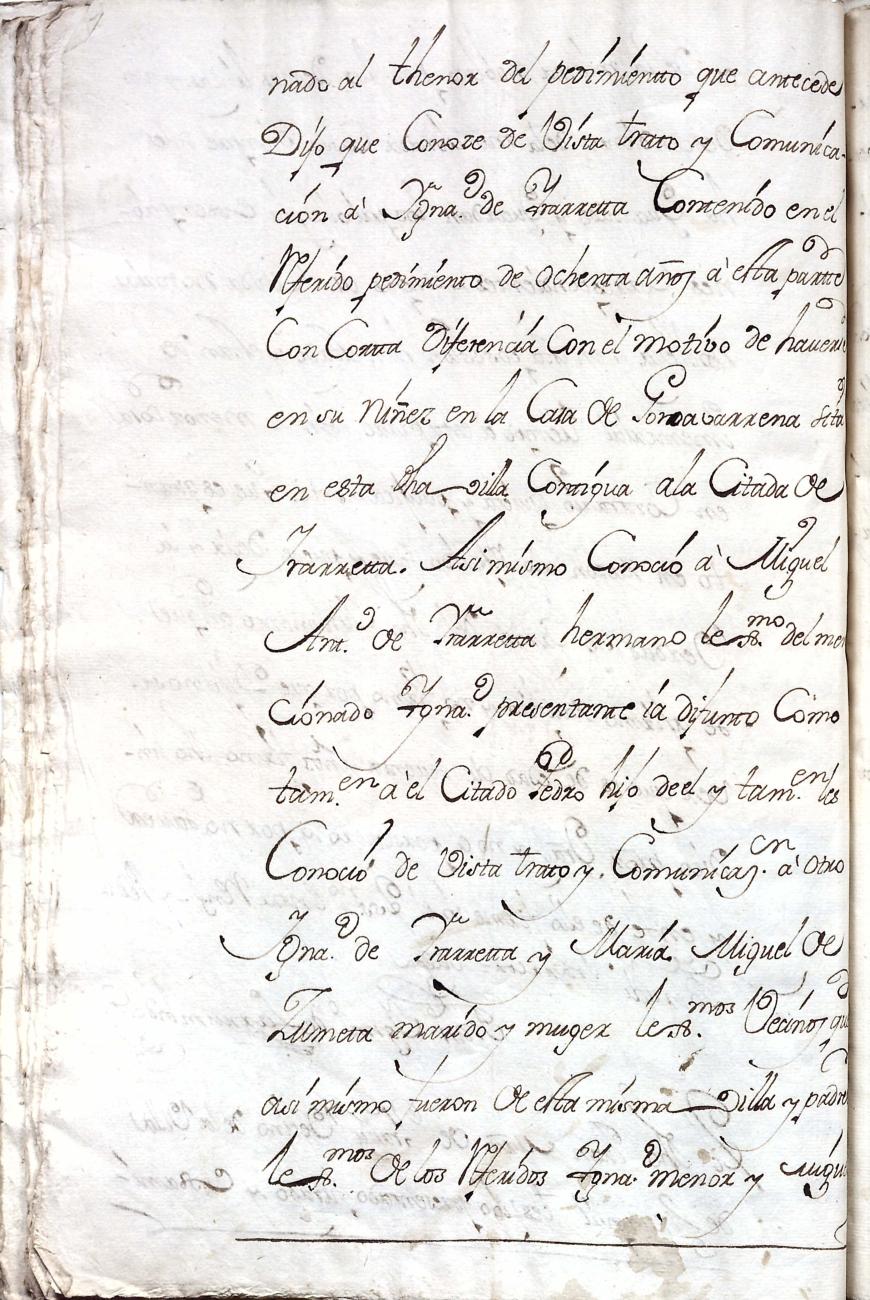 nado al thenor del pedimientto que antecede
Dijo que Conoze de Vista trato y Comunica-
ción à Ygna.º de Yrarretta Contenido en el
Rferido pedimiento de ochenta años à esta partte
Con Cortta diferencia Con el motivo de haver
en su Niñez en la Casa de
en esta dha villa Contigua a la Citada de
Yrarretta. Asi mismo Conoció à Miguel
Antt.º de Yrarretta hermano lexmo. del men
cionado Ygna.º presentante ia difunto Como
tam.en à el Citado Pedro hijo de el y tam.en les
Conoció de Vista trato y Comunicaz.on à otro
Ygna.º de Yrarretta y Maria Miguel de
Zumeta marido y muger lexmos. Vecinos que
asi mismo fueron de esta misma villa y padre
lexmos. de los Rferidos Ygna.º menor y Migu